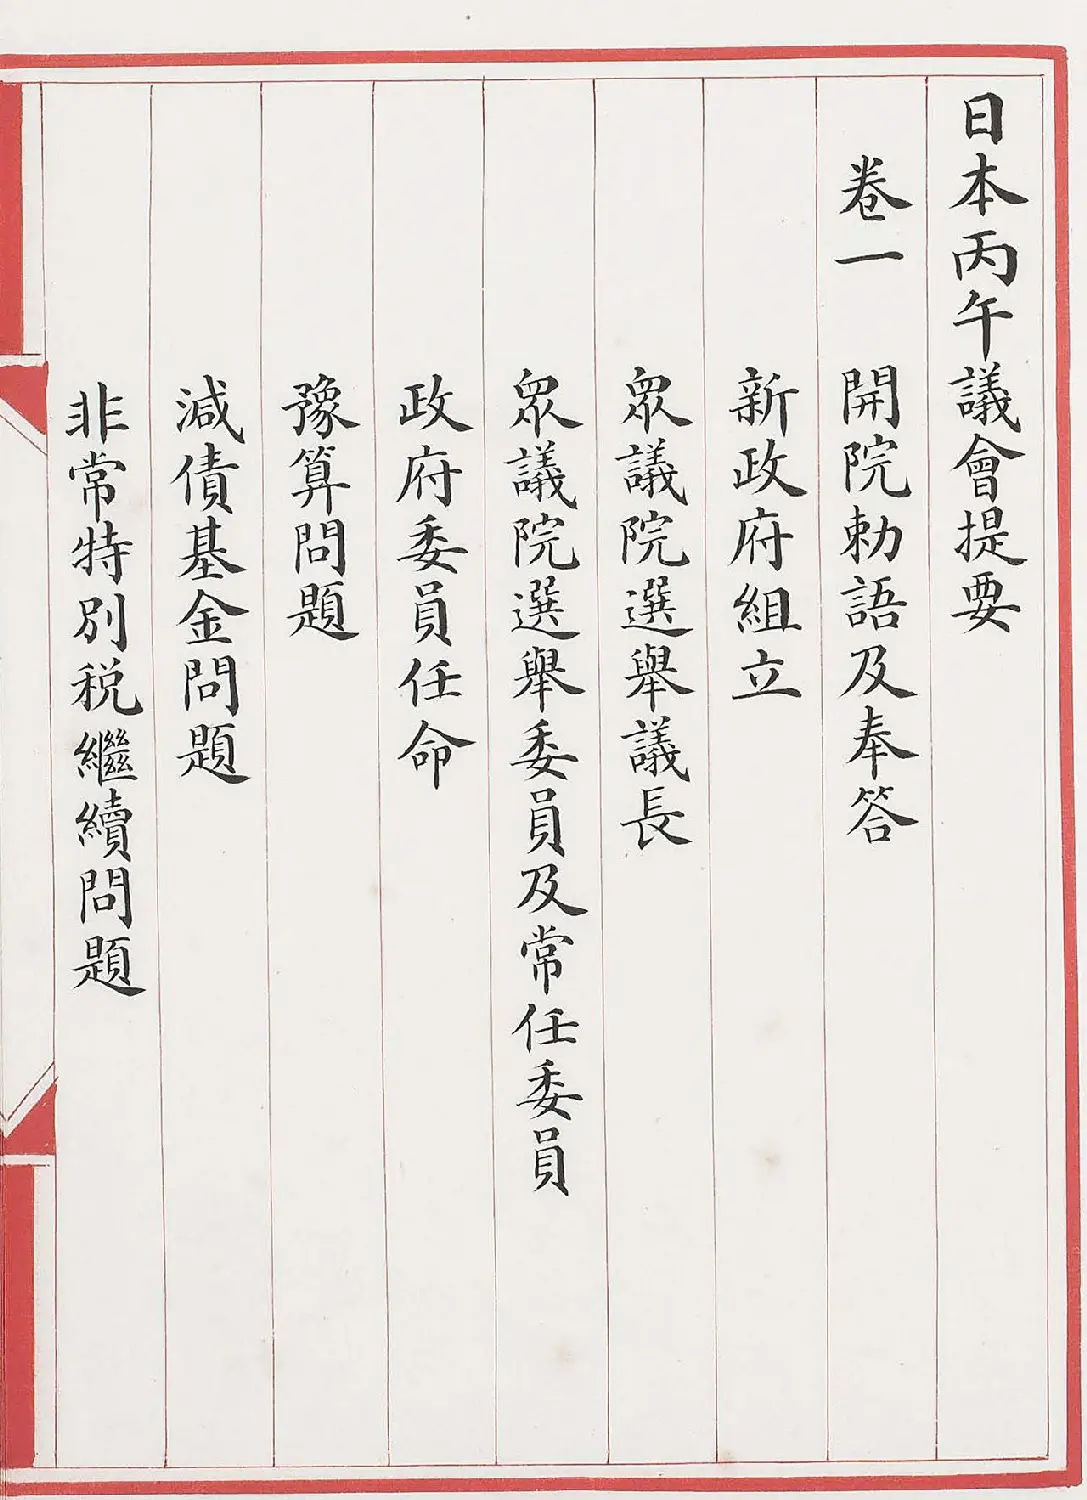 日本丙午議會提要
卷一 開院勅語及奉答
新政府組立
眾議院選舉議長
眾議院選舉委員及常任委員
政府委員任命
豫算問題
減債基金問題
非常特別税繼續問題